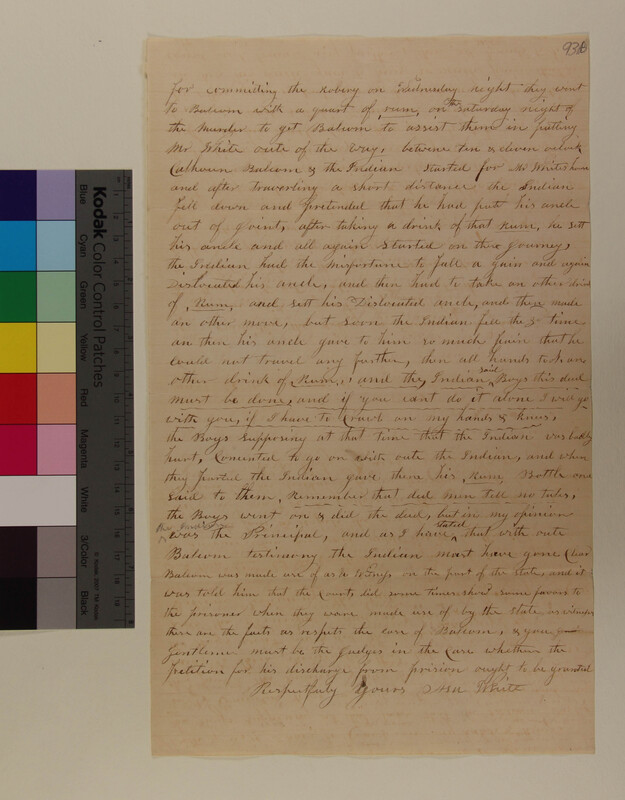 93b
for commiding the Robery on Wednesday night they went
to Balcom with a quart of, rum, on the Saturday night of
the Murder to get Balcom to assist them in putting
Mr White oute of the way, betwine ten & eleven oclock
Calhoun Balcom & the Indian Started for Mr Whites house
and after travorling a short distance the Indian
fell down and pretended that he had put his ancle
out of goint, after taking a drink of that Rum, he sett
his ancle and all again started on the journey,
the Indian had the misfortune to fall a gain and again
Dislocated his ancle, and then had to take an other drink
of, Rum, and sett his Dislocated ancle, and then made
an other move, but soon the Indian fell the 3 time
an then his ancle gave to him so much pain that he
could not travel any further, then all hands took an
other drink of Rum, and the Indian said Boys this deed
must be done, and if you cant do it alone I will go
with you, if I have to crawl on my hands & knees,
the Boys supposing at that time that the Indian was badly
hurt, Concented to go on with oute the Indian, and when
they parted the Indian gave them his, Rum Bottle and
said to them, Remember that ded men tell no tales,
the Boys went on & did the deed, but in my opinion
the Indian was the Principal, and as I have stated that with oute
Balcom testimony the Indian must have gone Clear
Balcom was made use of as on the part of the state, and it
was told him that the Courts did some times show some favors to
the prisoner when they ware made use of by the state as
these are the facts as respets the case of Balcom, & you
Gentlemen must be the Judges in the case whether the
Petition for his discharge from prision ought to be granted
Respectfuly Yours Asa White
Kodak Color Control Patches
Blue
Cyan
Green
Yellow
Red
Magenta
White
3/Color
Black